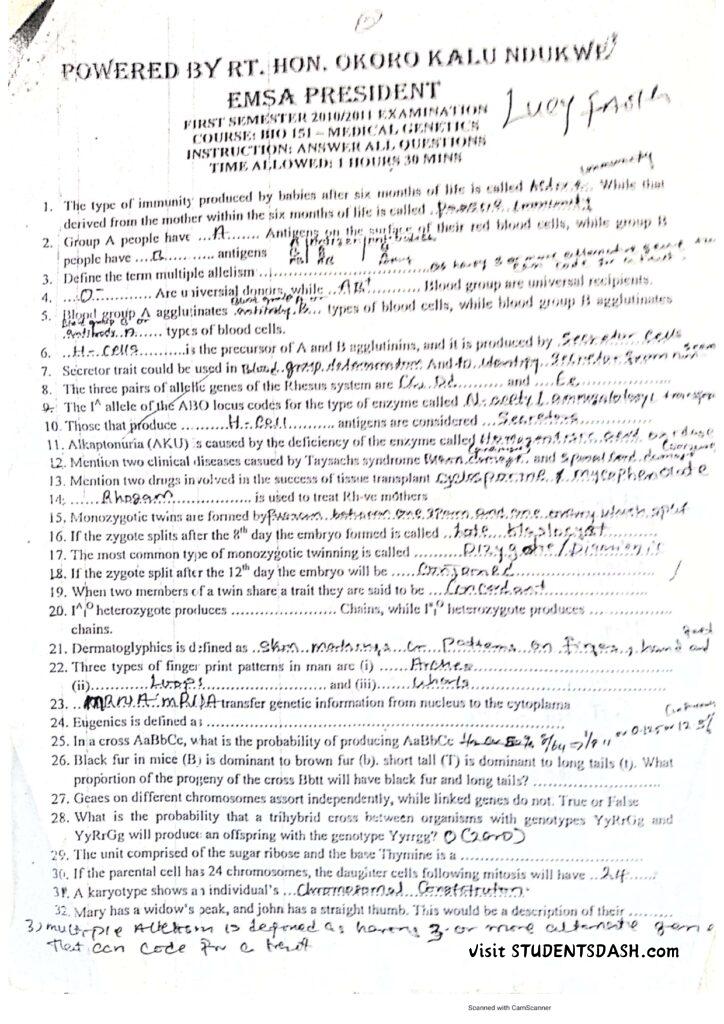 POWERED BY RT. HON. OKORO KALU NDUKWE
EMSA PRESIDENT
Lucy Faith
FIRST SEMESTER 2010/2011 EXAMINATION
COURSE: BIO 151 – MEDICAL GENETICS
INSTRUCTION: ANSWER ALL QUESTIONS
TIME ALLOWED: 1 HOURS 30 MINS
immunity
1. The type of immunity produced by babies after six months of life is called Active. While that
derived from the mother within the six months of life is called .Passive immunity
2. Group A people have ...A.... Antigens on the surface of their red blood cells, while group B
people have ...B....... antigens
3. Define the term multiple allelism ...
4. ....O-....... Are universial donors, while ...AB+............ Blood group are universal recipients.
5. Blood group A agglutinates antibody B... types of blood cells, while blood group B agglutinates
antibody A........ types of blood cells.
6. ..H-cells..........is the precursor of A and B agglutinins, and it is produced by Secretor cells
7. Secretor trait could be used in Blood group determination And to identify Secretor from non
8. The three pairs of allelic genes of the Rhesus system are Cc, Dd.......... and ....Ee..........
9. The I^A allele of the ABO locus codes for the type of enzyme called N-acetyl
10. Those that produce ..........H-Cell............. antigens are considered ...Secretors.........
11. Alkaptonuria (AKU) is caused by the deficiency of the enzyme called Homogentisic acid oxidase
12. Mention two clinical diseases casued by Taysachs syndrome Brain damage and Spinal cord damage
13. Mention two drugs involved in the success of tissue transplant cyclosporine & mycophenolate
14. ....Rhogam.................... is used to treat Rh-ve mothers
15. Monozygotic twins are formed by fusion between one sperm and one which split
16. If the zygote splits after the 8th day the embryo formed is called ..late blastocyst
17. The most common type of monozygotic twinning is called ........Dizygotic/Diamniotic
18. If the zygote split after the 12th day the embryo will be .....Conjoined
19. When two members of a twin share a trait they are said to be ....Concordant
20. I^A I^O heterozygote produces ....................... Chains, while I^B I^O heterozygote produces ...............
chains.
21. Dermatoglyphics is defined as ..Skin markings or patterns on fingers, hand and
22. Three types of finger print patterns in man are (i) .....Arches
(ii)............Loops.......................... and (iii)..............whorls
23. ..mRNA transfer genetic information from nucleus to the cytoplama
24. Eugenics is defined as ..........................................................
25. In a cross AaBbCc, what is the probability of producing AaBbCc 8/64 → 1/8 or 0.125 or 12.5%
26. Black fur in mice (B) is dominant to brown fur (b). short tall (T) is dominant to long tails (t). What
proportion of the progeny of the cross Bbtt will have black fur and long tails? .....................
27. Geaes on different chromosomes assort independently, while linked genes do not. True or False
28. What is the probability that a trihybrid cross between organisms with genotypes YyRrGg and
YyRrGg will produce an offspring with the genotype Yyrrgg? 0 (zero)
29. The unit comprised of the sugar ribose and the base Thymine is a ............................
30. If the parental cell has 24 chromosomes, the daughter cells following mitosis will have ..24....
31. A karyotype shows an individual's ...Chromosomal Constitution.
32. Mary has a widow's peak, and john has a straight thumb. This would be a description of their .........
3) multiple Allelism is defined as having 3 or more alternate gene
that can code for a trait
visit STUDENTSDASH.com
Scanned with CamScanner